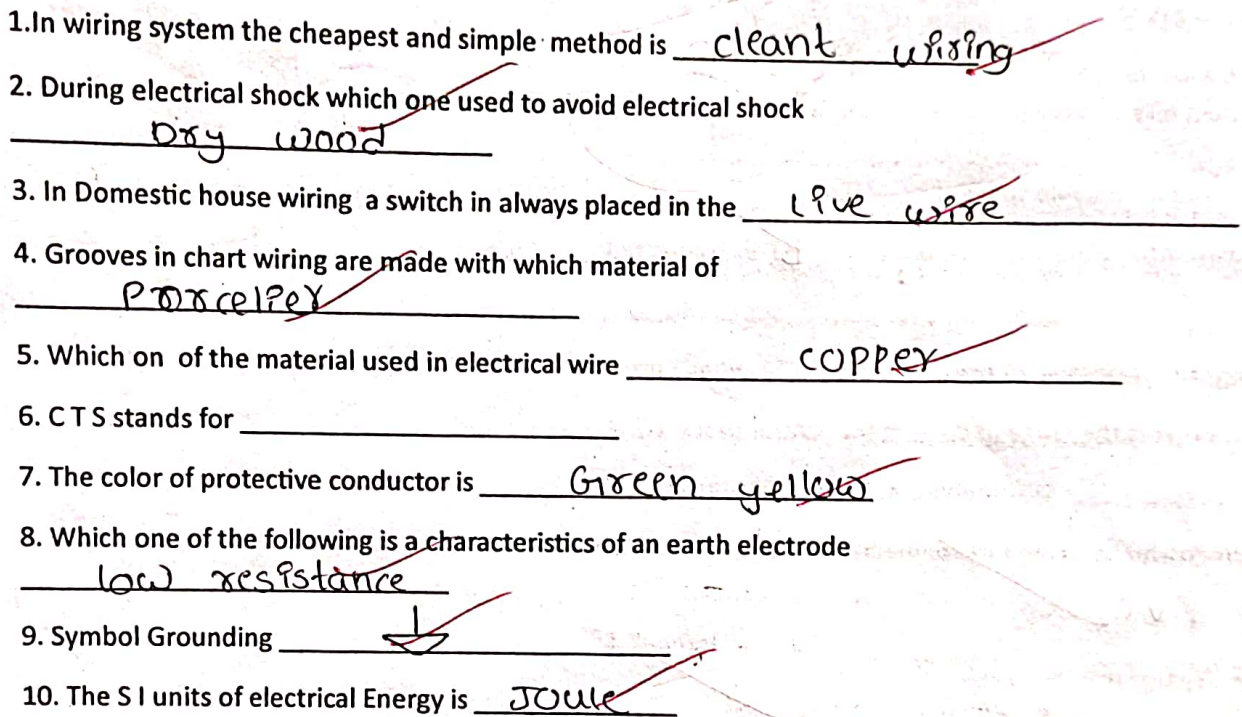 1.In wiring system the cheapest and simple method is cleant wiring
2. During electrical shock which one used to avoid electrical shock
Dry wood
3. In Domestic house wiring a switch in always placed in the live wire
4. Grooves in chart wiring are made with which material of
Porxcelier
5. Which on of the material used in electrical wire copper
6. C T S stands for
7. The color of protective conductor is Green yellow
8. Which one of the following is a characteristics of an earth electrode
low resistance
9. Symbol Grounding
10. The S I units of electrical Energy is Joule